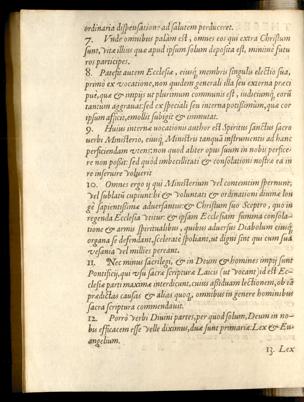 ordinaria dispensatione ad salutem perduceret.
7. Vnde omnibus palàm est, omnes eos qui extra Christum
sunt, vitæ illius quæ apud ipsum solum deposita est, minimè futu
ros participes.
8. Patefit autem Ecclesiæ, eiusq; membris singulis electio sua,
primò ex vocatione, non quidem generali illa seu externa præci
puè, quæ & impijs ut plurimum communis est, indeciumq; eorū
tantum aggrauat: sed ex speciali seu interna potissimùm, quæ cor
ipsum afficit, emollit subigit & immutat.
9. Huius internæ uocationis author est Spiritus sanctus sacro
uerbi Ministerio, eiusq; Ministris tanquā instrumentis ad hanc
perficiendam vtens: non quod aliter opus suum in nobis perfice-
re non possit: sed quòd imbecillitati & consolationi nostræ ea in
re inseruire voluerit
10. Omnes ergo ij qui Ministerium vel contemtim spernunt,
vel sublatū cupiunt hi & voluntati & ordinationi diuinæ lon
gè sapientissimæ aduersantur: & Christum suo Sceptro, quo in
regenda Ecclesia vtitur: & ipsam Ecclesiam summa consola-
tione & armis spiritualibus, quibus aduersus Diabolum eiusq;
organa se defendant, sceleratè spoliant, ut digni sint qui cum suā
vesania vel millies pereant.
11. Nec minus sacrilegi, & in Deum & homines impij sunt
Pontificij, qui usu sacræ scripturæ Laicis (ut vocant) id est Ec-
clesiæ parti maximæ interdicunt, cuius assiduam lectionem, ob iā
prædictas causas & alias quoq, omnibus in genere hominibus
sacra scriptura commendauit.
12. Porrò verbi Diuini partes, per quod solum, Deum in no-
bis efficacem esse velle diximus, duæ sunt primariæ: Lex & Eu-
angelium.
13. Lex